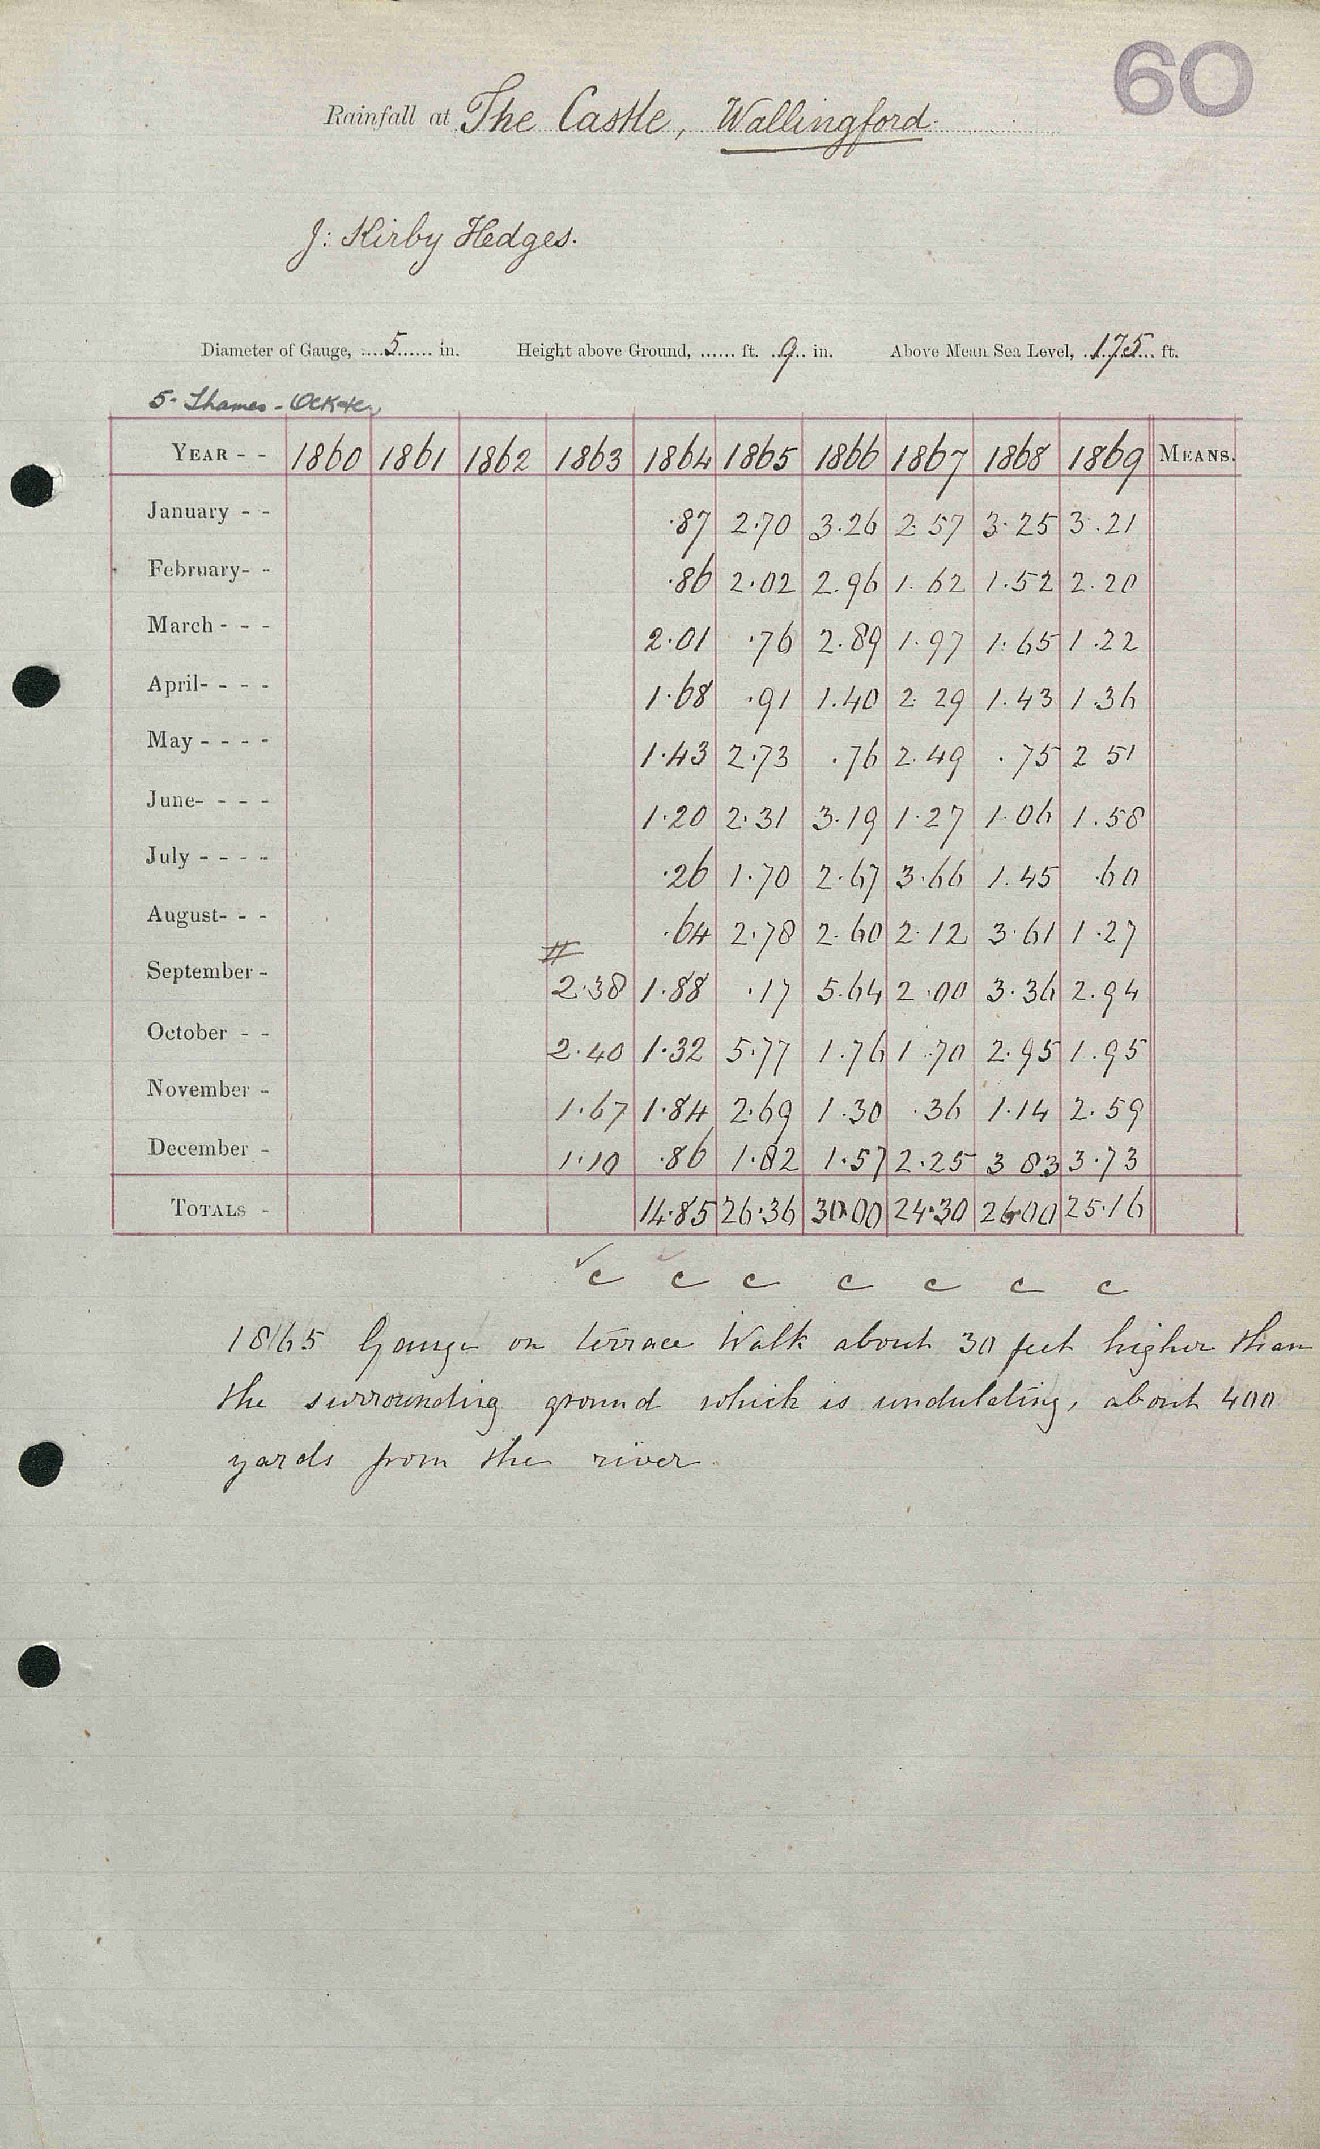 60
Rainfall at The Castle, Wallingford.
J: Kirby Hedges.
Diameter of Gauge, 5 in. Height above Ground, ...... ft. 9 in. Above Mean Sea Level, 175 ft.
5. Thames - Ock &c
YEAR - - 1860 1861 1862 1863 1864 1865 1866 1867 1868 1869 MEANS.
January - - ·87 2·70 3·26 2·57 3·25 3·21
February- - ·86 2·02 2·96 1·62 1·52 2·20
March - - - 2·01 ·76 2·89 1·97 1·65 1·22
April- - - - 1·68 ·91 1·40 2·29 1·43 1·36
May - - - - 1·43 2·73 ·76 2·49 ·75 2 51
June- - - - 1·20 2·31 3·19 1·27 1·06 1·58
July - - - - ·26 1·70 2·67 3·66 1·45 ·60
August- - - ·64 2·78 2·60 2·12 3·61 1·27
#
September - 2·38 1·88 ·17 5·64 2·00 3·36 2·94
October - - 2·40 1·32 5·77 1·76 1·70 2·95 1·95
November - 1·67 1·84 2·69 1·30 ·36 1·14 2·59
December - 1·10 ·86 1·82 1·57 2·25 3 83 3·73
TOTALS - 14·85 26·36 30·00 24·30 26·00 25·16
✓c c c c c c c
1865 Gauge on terrace Walk about 30 feet higher than
the surrounding ground which is undulating, about 400
yards from the river.